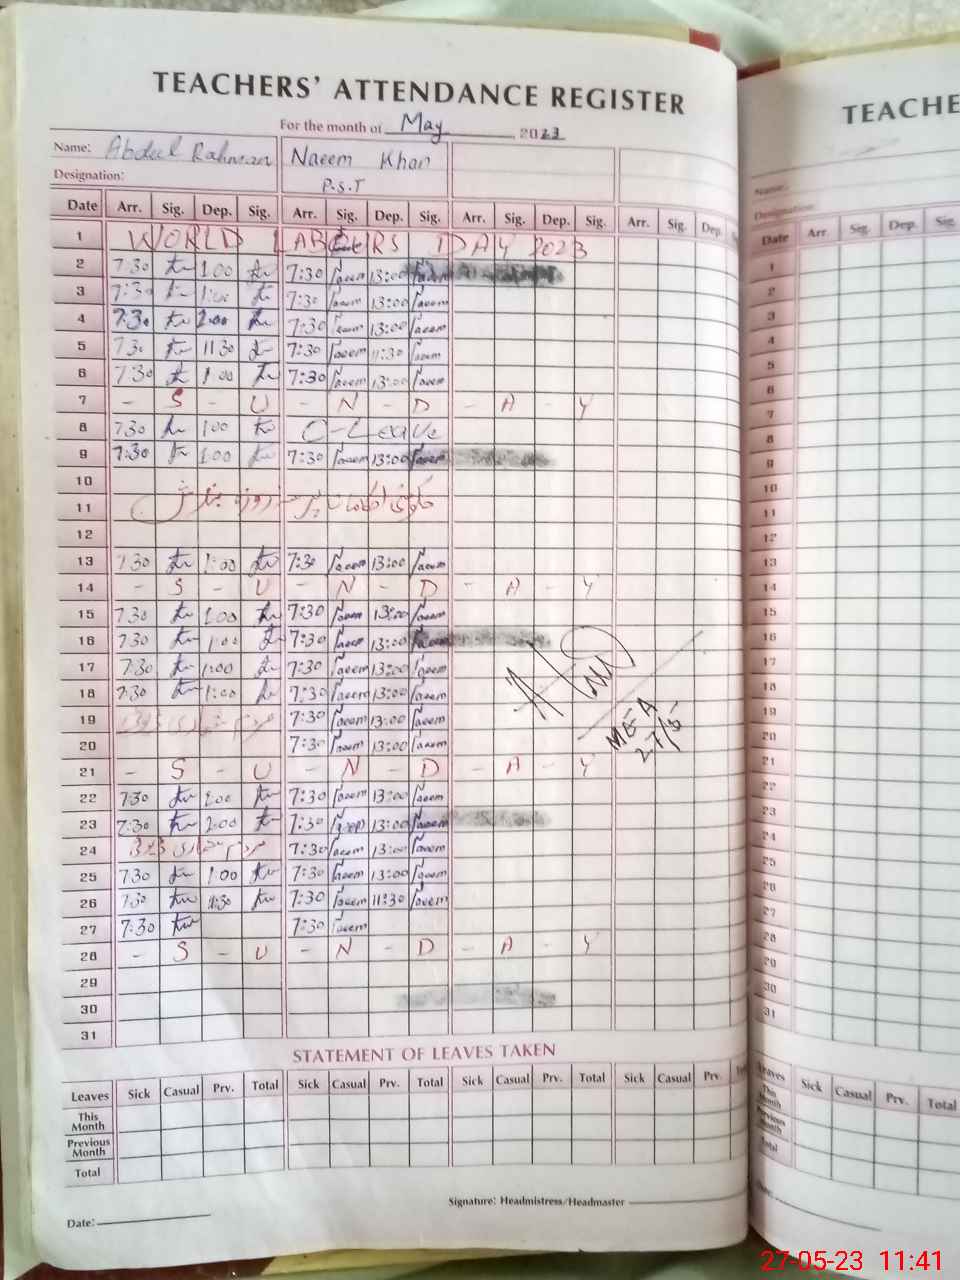 TEACHERS' ATTENDANCE REGISTER
For the month of May, 2023
Name: Abdul Rahman Naeem Khan
Designation: P.S.T
Date Arr. Sig. Dep. Sig. Arr. Sig. Dep. Sig. Arr. Sig. Dep. Sig. Arr. Sig. Dep.
1 WORLD LABOURS DAY 2023
2 7:30 1:00 7:30 Naeem 13:00 Naeem
3 7:30 1:00 7:30 Naeem 13:00 Naeem
4 7:30 1:00 7:30 Naeem 13:00 Naeem
5 7:30 11:30 7:30 Naeem 11:30 Naeem
6 7:30 1:00 7:30 Naeem 13:00 Naeem
7 - S - U - N - D - A - Y
8 7:30 1:00 C-Leave
9 7:30 1:00 7:30 Naeem 13:00 Naeem
10
11
12
13 7:30 1:00 7:30 Naeem 13:00 Naeem
14 - S - U - N - D - A - Y
15 7:30 1:00 7:30 Naeem 13:00 Naeem
16 7:30 1:00 7:30 Naeem 13:00 Naeem
17 7:30 1:00 7:30 Naeem 13:00 Naeem
18 7:30 1:00 7:30 Naeem 13:00 Naeem
19 مردم شماری ڈیوٹی 7:30 Naeem 13:00 Naeem
20 7:30 Naeem 13:00 Naeem
21 - S - U - N - D - A - Y
22 7:30 1:00 7:30 Naeem 13:00 Naeem
23 7:30 1:00 7:30 Naeem 13:00 Naeem
24 مردم شماری ڈیوٹی 7:30 Naeem 13:00 Naeem
25 7:30 1:00 7:30 Naeem 13:00 Naeem
26 7:30 11:30 7:30 Naeem 11:30 Naeem
27 7:30 7:30 Naeem
28 - S - U - N - D - A - Y
29
30
31
MEA
27/5-
STATEMENT OF LEAVES TAKEN
Leaves Sick Casual Prv. Total Sick Casual Prv. Total Sick Casual Prv. Total Sick Casual Prv.
This Month
Previous Month
Total
Signature: Headmistress/Headmaster
Date:
TEACHE
Name:
Designation:
Date Arr. Sig. Dep. Sig.
1
2
3
4
5
6
7
8
9
10
11
12
13
14
15
16
17
18
19
20
21
22
23
24
25
26
27
28
29
30
31
Leaves Sick Casual Prv. Total
This Month
Previous Month
Total
27-05-23 11:41